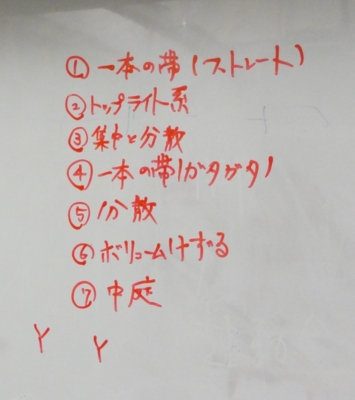 ① 一本の帯(ストレート)
② トップライト系
③ 集中と分散
④ 一本の帯(ガタガタ)
⑤ 分散
⑥ ボリュームけずる
⑦ 中庭
Y Y